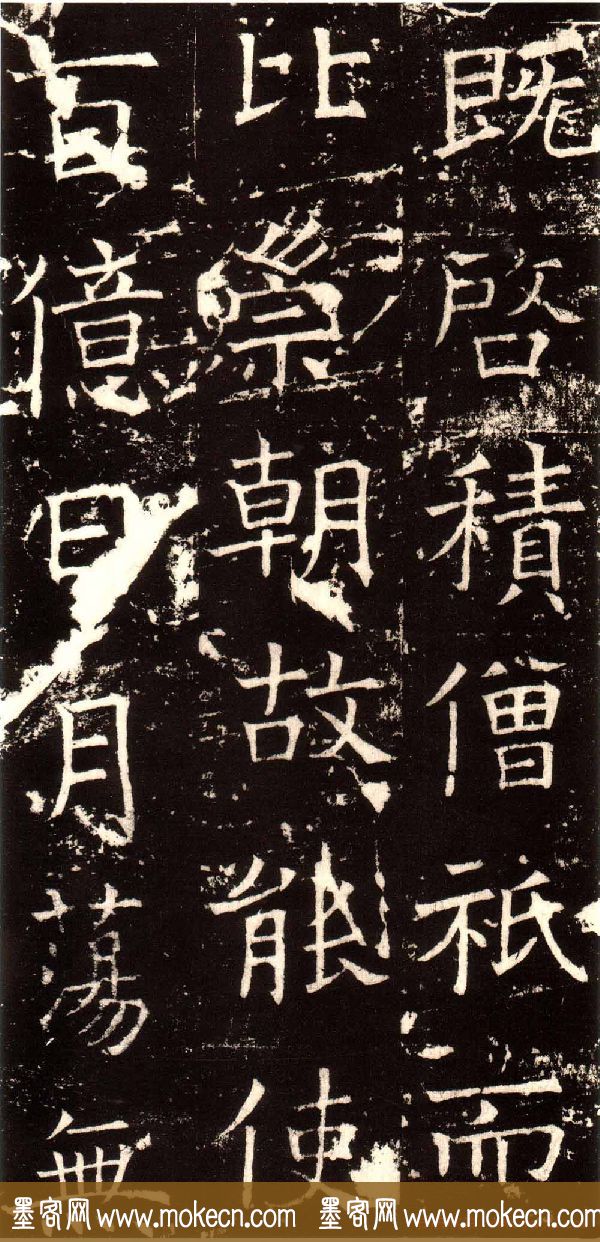 既啓積僧祇而
比崇朝故能使
百億日月蕩無
墨客网 www.mokecn.com 墨客网 www.mokecn.com